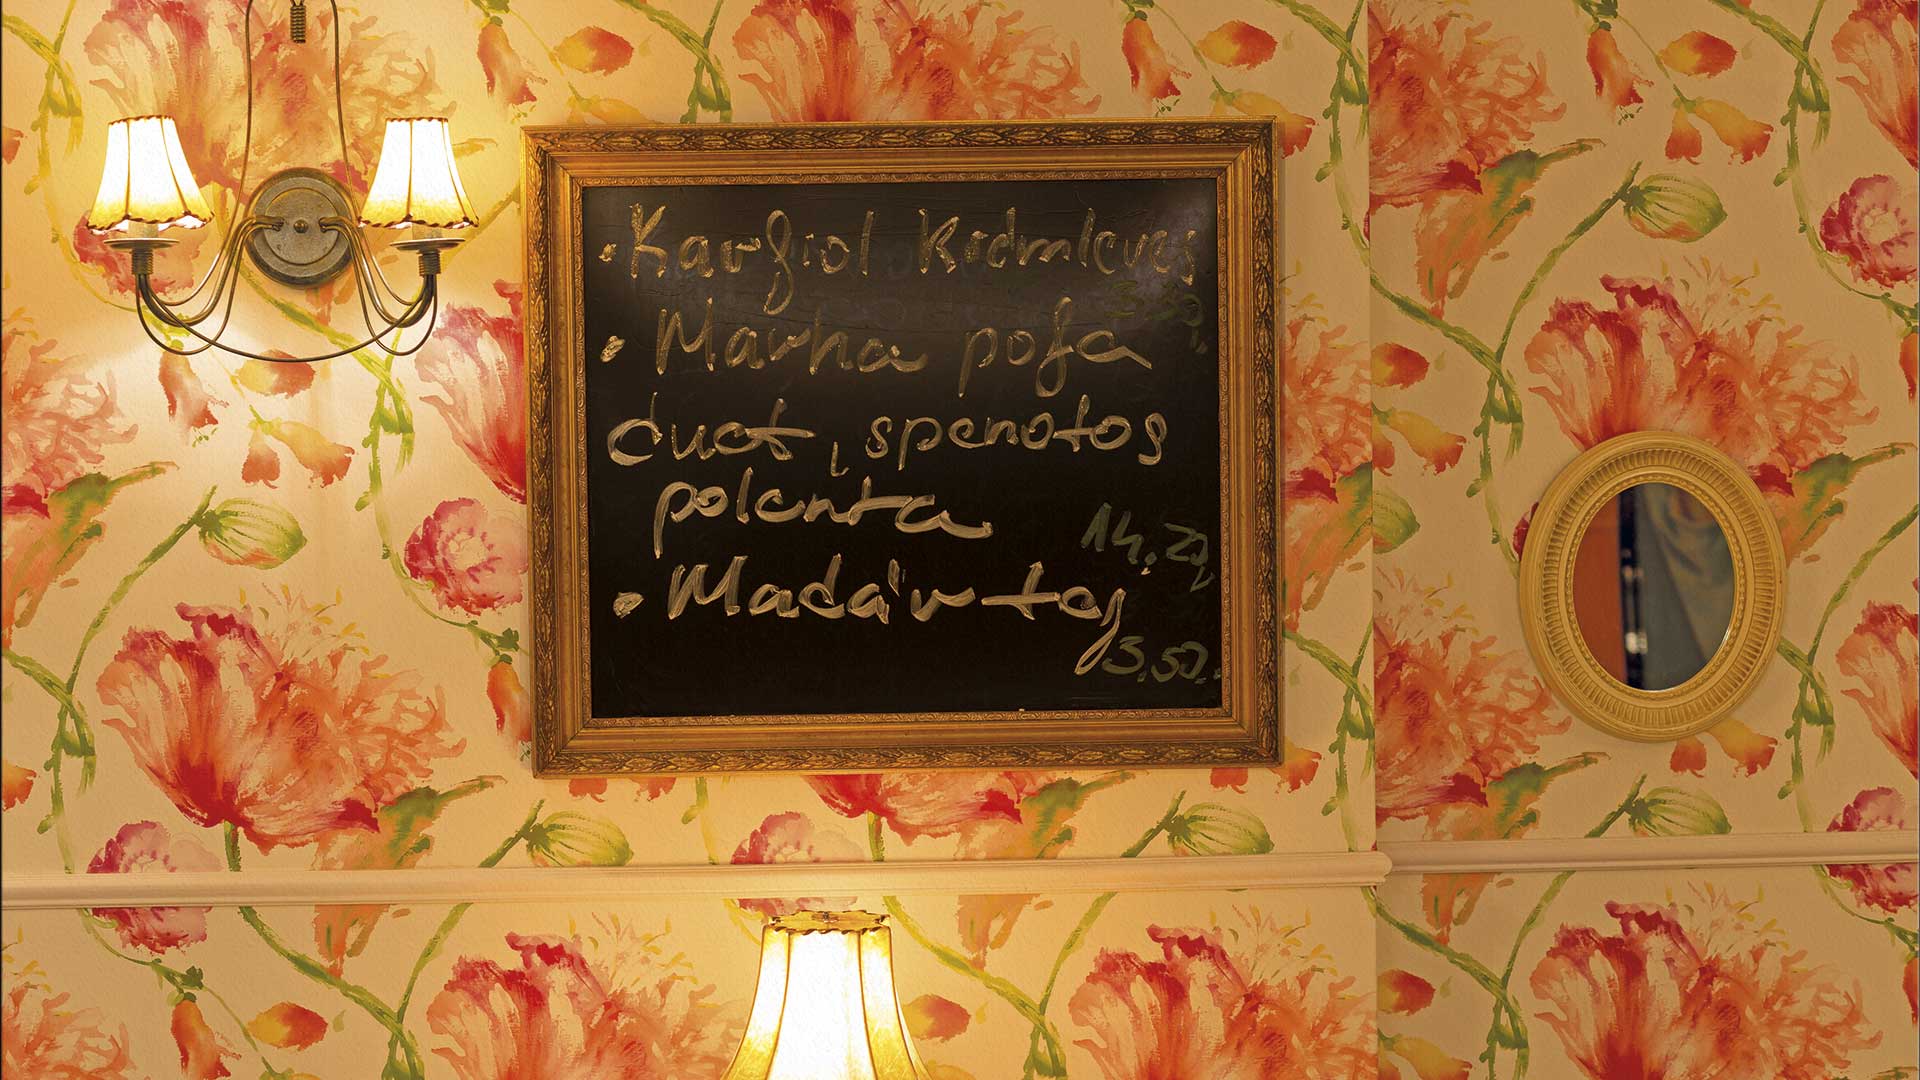 • Karfiol Krémleves
3.50,
• Marha pofa
duet, spenótos
polenta
14.20,
• Madártej
3.50.